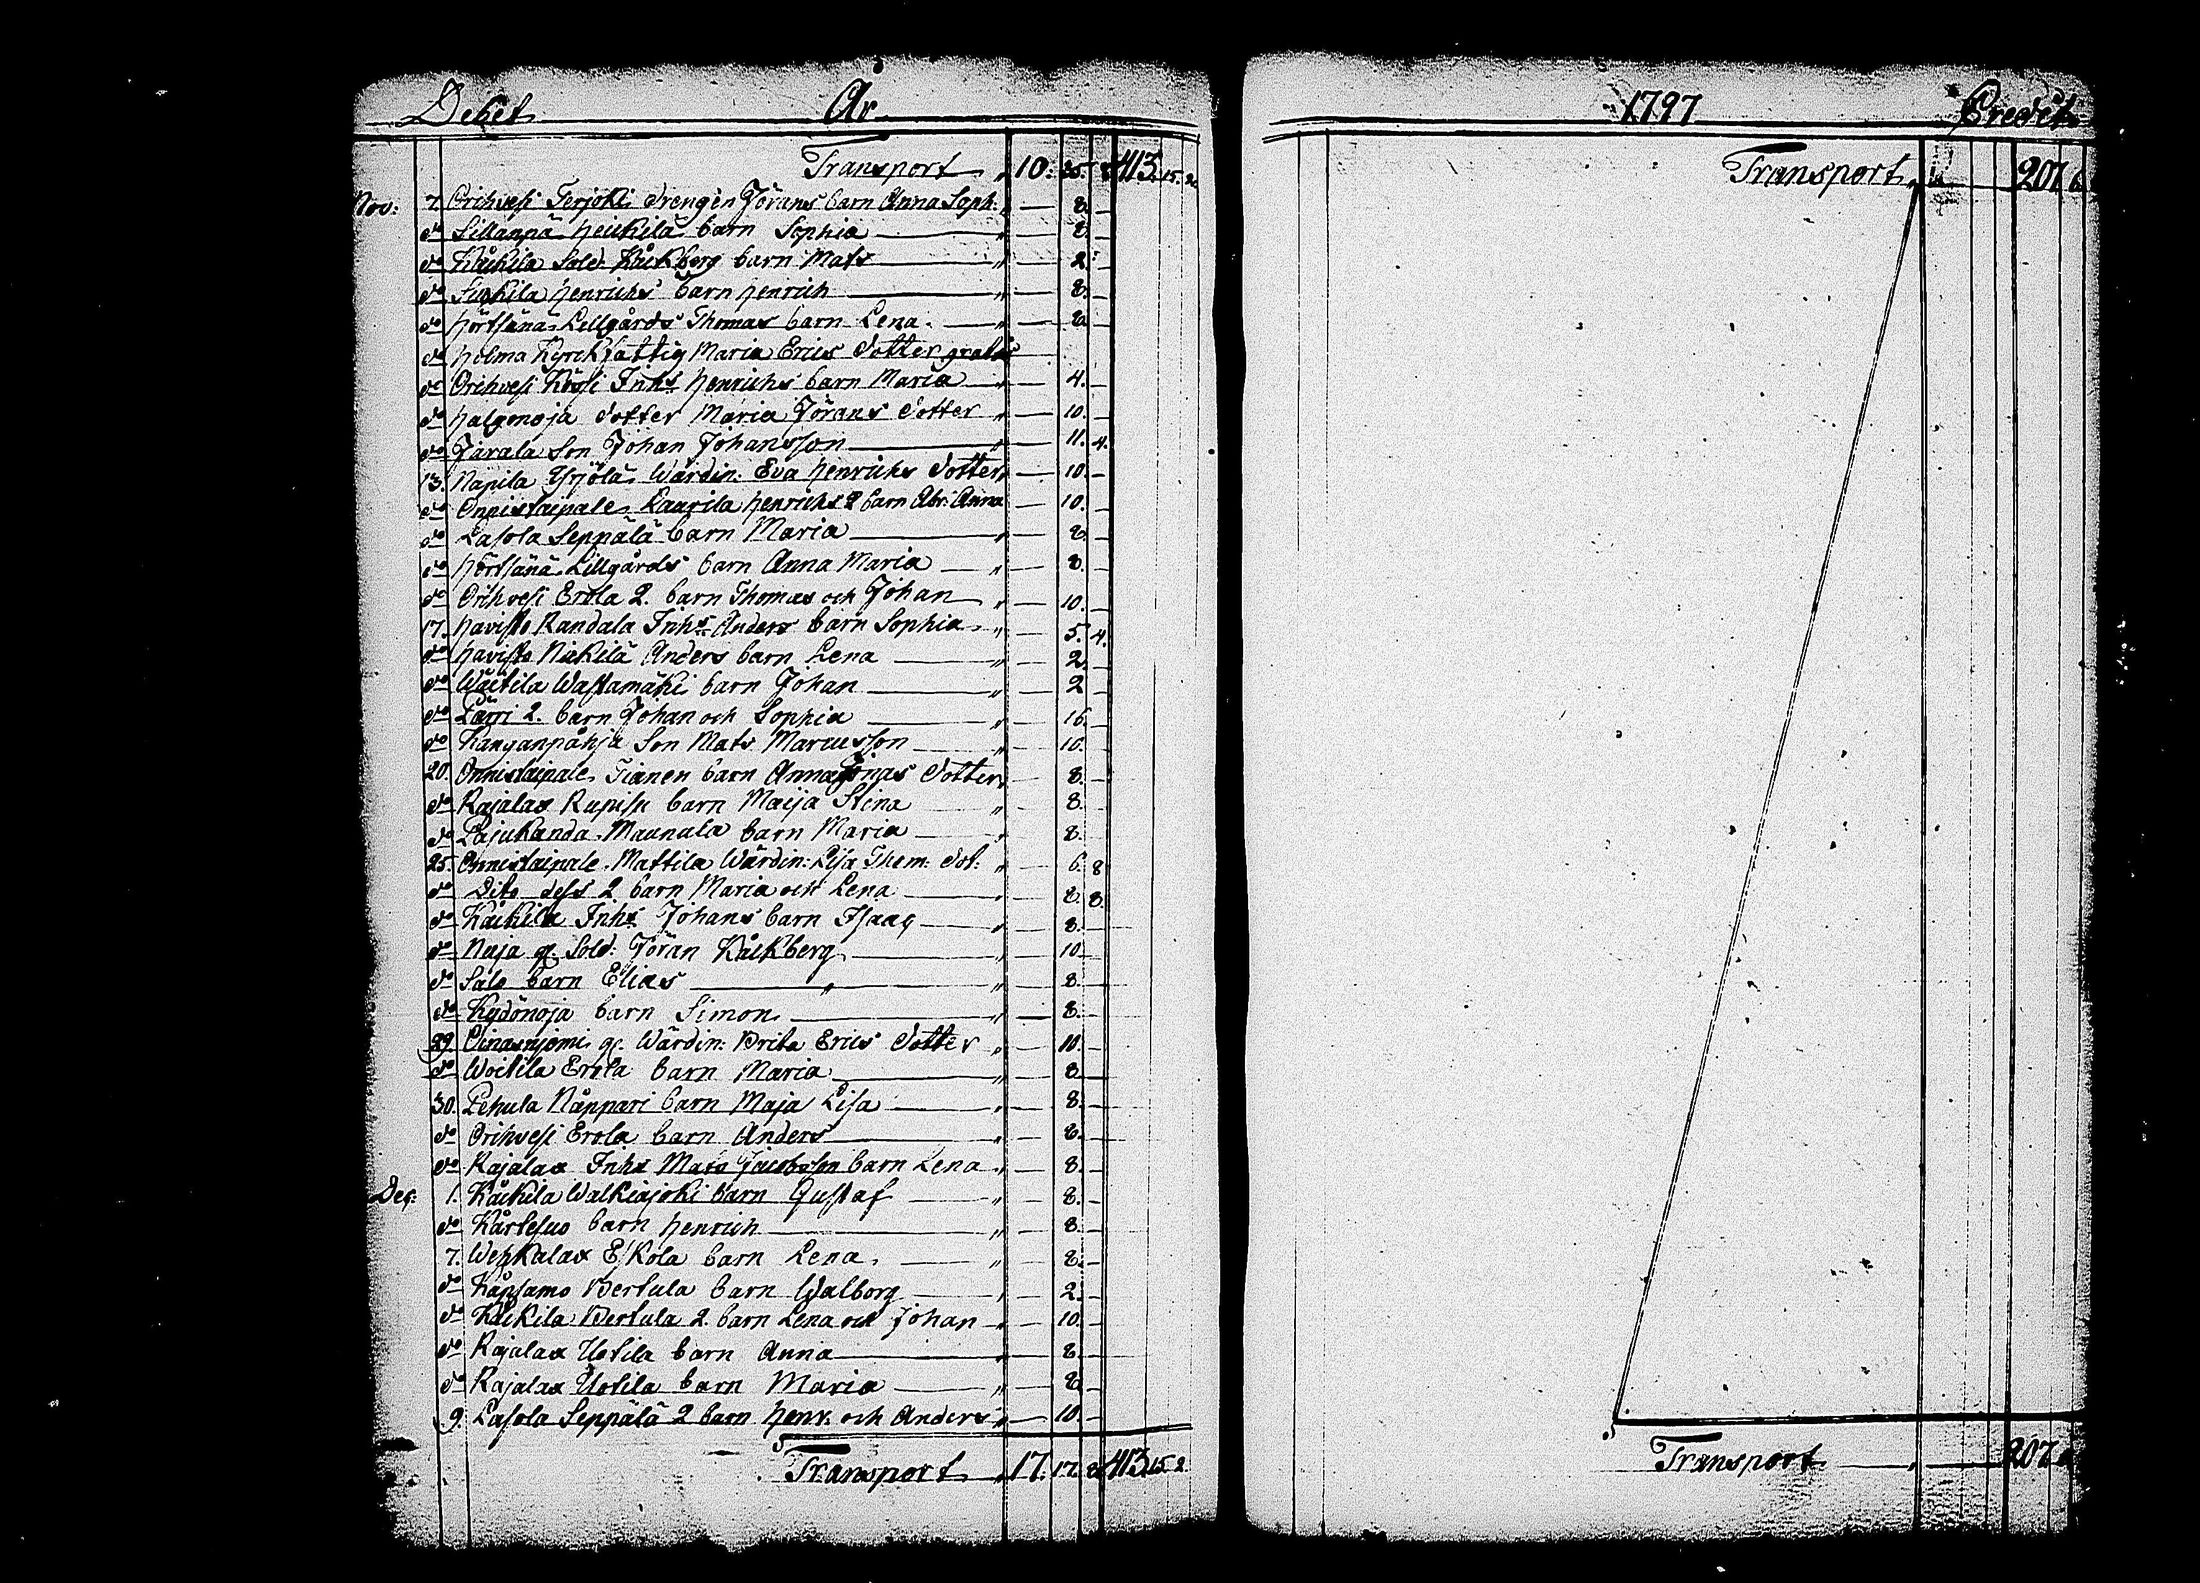 Debet År
Transport " 10. 35. 8 413. 15. 2
Nov: 7. Orihvesi Terjoki Drengen Jörans barn Anna Soph: " — 8. —
do Sillanpä Heickilä barn Sophia — " — 8. —
do Kåckila Sold. Kåckberg barn Mats — " — 2. —
do Henrichs barn Henrich — " — 8. —
do Hörtsänä Lillgårds Thomas barn Lena — " — 8. —
do Holma Kyrckfattig Maria Erics Dotter gratis
do Orihvesi Inhs Henrichs barn Maria — " — 4. —
do Dotter Maria Jörans Dotter " — 10. —
do Järala Son Johan Johansson — " — 11. 4.
13. Napila Yrjölä Wärdin: Eva Henrichs Dotter " — 10. —
do Onnistaipale Laurila Henrichs 2 barn Abr: Anna — 10. —
do Lasola Seppälä barn Maria — " — 8. —
do Hörtsänä Lillgårds barn Anna Maria — " — 8. —
do Orihvesi Erola 2. barn Thomas och Johan " — 10. —
17. Havisto Randala Inhs Anders barn Sophia " — 5. 4.
do Havisto Nickilä Anders barn Lena — " — 2. —
do Wäitila Wastamäki barn Johan — " — 2 —
do Pärri 2. barn Johan och Sophia — " — 16. —
do Kanganpåhja Son Mats Marcusson — " — 10. —
20. Onnistaipale Tianen barn Anna Jonas Dotter " — 8. —
do Rajalax Rupisu barn Maija Stina — " — 8. —
do Pajukanda Maunula barn Maria — " — 8. —
25. Onnistaipale Mattila Wärdin: Lisa Thom: Dot: " — 6. 8
do Dito dess 2 barn Maria och Lena — " — 8. 8.
do Kåckila Inhs Johans barn Isaac — " — 8. —
do Naja gl. Sold: Jöran Kåckberg — " — 10. —
do Salo barn Elias — " — 8. —
do Kydönoja barn Simon — " — 8. —
29. gl. Wärdin: Brita Erics Dotter " — 10. —
do Woitila Erola barn Maria — " — 8. —
30. Pehula Näppari barn Maja Lisa — " — 8. —
do Orihvesi Erola barn Anders — " — 8. —
do Rajalax Inhs Mats Jacobsson barn Lena " — 8. —
Dec: 1. Kåckila Walkiajoki barn Gustaf — " — 8. —
do Kårtesuo barn Henrich — " — 8. —
7. Wehkalax Eskola barn Lena — " — 8. —
do Kåpsamo Bertula barn Walborg — " — 2. —
do Kåckila Bertula 2. barn Lena och Johan " — 10. —
do Rajalax Uotila barn Anna — " — 8. —
do Rajalax Uotila barn Maria — " — 8. —
9. Lasola Seppälä 2 barn Henr. och Anders " — 10. —
Transport " 17. 17. 8 413. 15. 2
1797 Credit
Transport " 207
Transport " 207